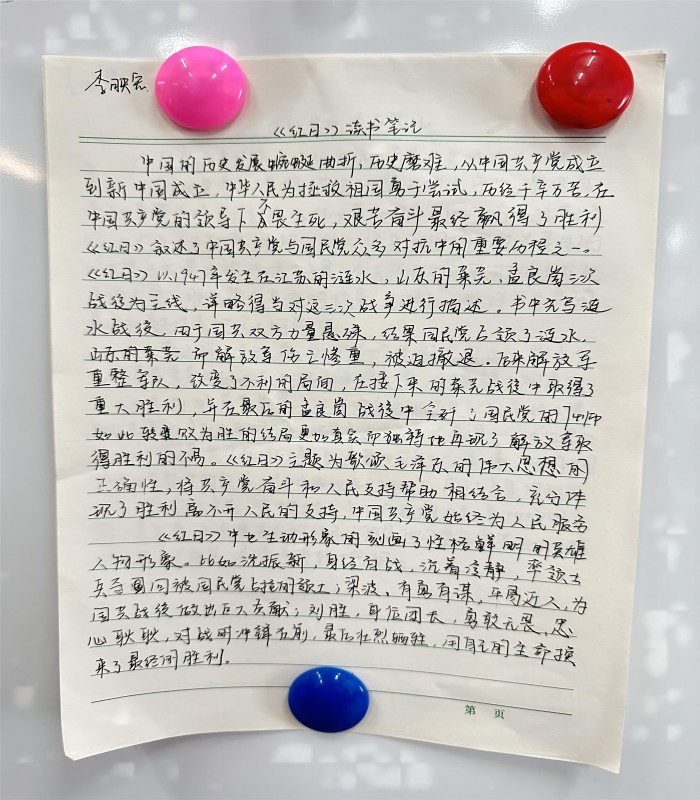 李映宏
《红日》读书笔记
中国的历史发展蜿蜒曲折,历史磨难,从中国共产党成立
到新中国成立,中华人民为拯救祖国勇于尝试,历经千辛万苦,在
中国共产党的领导下不畏生死,艰苦奋斗最终赢得了胜利
《红日》叙述了中国共产党与国民党众多对抗中的重要历程之一。
《红日》以1947年发生在江苏的涟水,山东的莱芜、孟良崮三次
战役为主线,详略得当对这三次战争进行描述。书中先写涟
水战役,由于国共双方力量悬殊,结果国民党占领了涟水,
山东的莱芜而解放军伤亡惨重,被迫撤退。后来解放军
重整军队,改变了不利的局面,在接下来的莱芜战役中取得了
重大胜利,并在最后的孟良崮战役中全歼了国民党的74师
如此转败为胜的结局更加真实而独特地再现了解放军取
得胜利的不易。《红日》主题为歌颂毛泽东的伟大思想的
正确性,将共产党奋斗和人民支持帮助相结合,充分体
现了胜利离不开人民的支持,中国共产党始终为人民服务
《红日》中也生动形象的刻画了性格鲜明的英雄
人物形象。比如沈振新,身经百战,沉着冷静,率领士
兵夺回被国民党占据的领土;梁波,有勇有谋,平易近人,为
国共战役做出巨大贡献;刘胜,身位团长,勇敢无畏,忠
心耿耿,对战时冲锋在前,最后壮烈牺牲,用自己的生命换
来了最终的胜利。
第 页